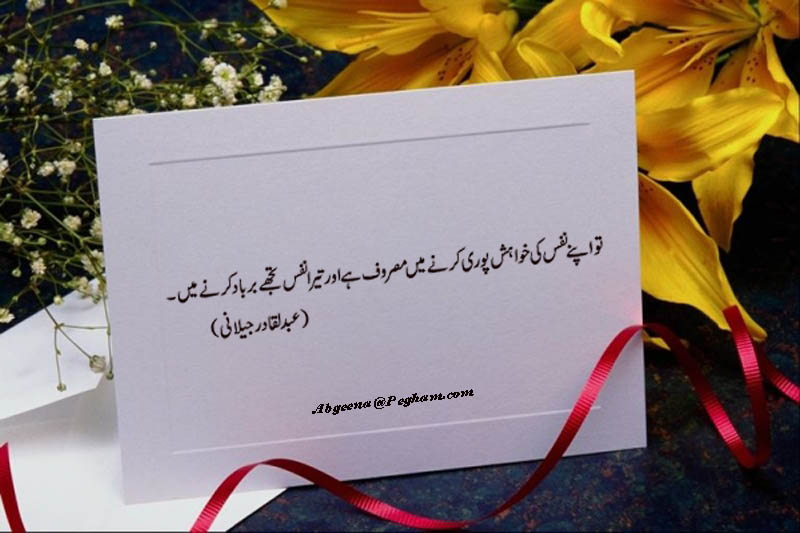 تو اپنے نفس کی خواہش پوری کرنے میں مصروف ہے اور تیرا نفس تجھے برباد کرنے میں۔
(عبدلقادر جیلانی)
Abgeena@Pegham.com